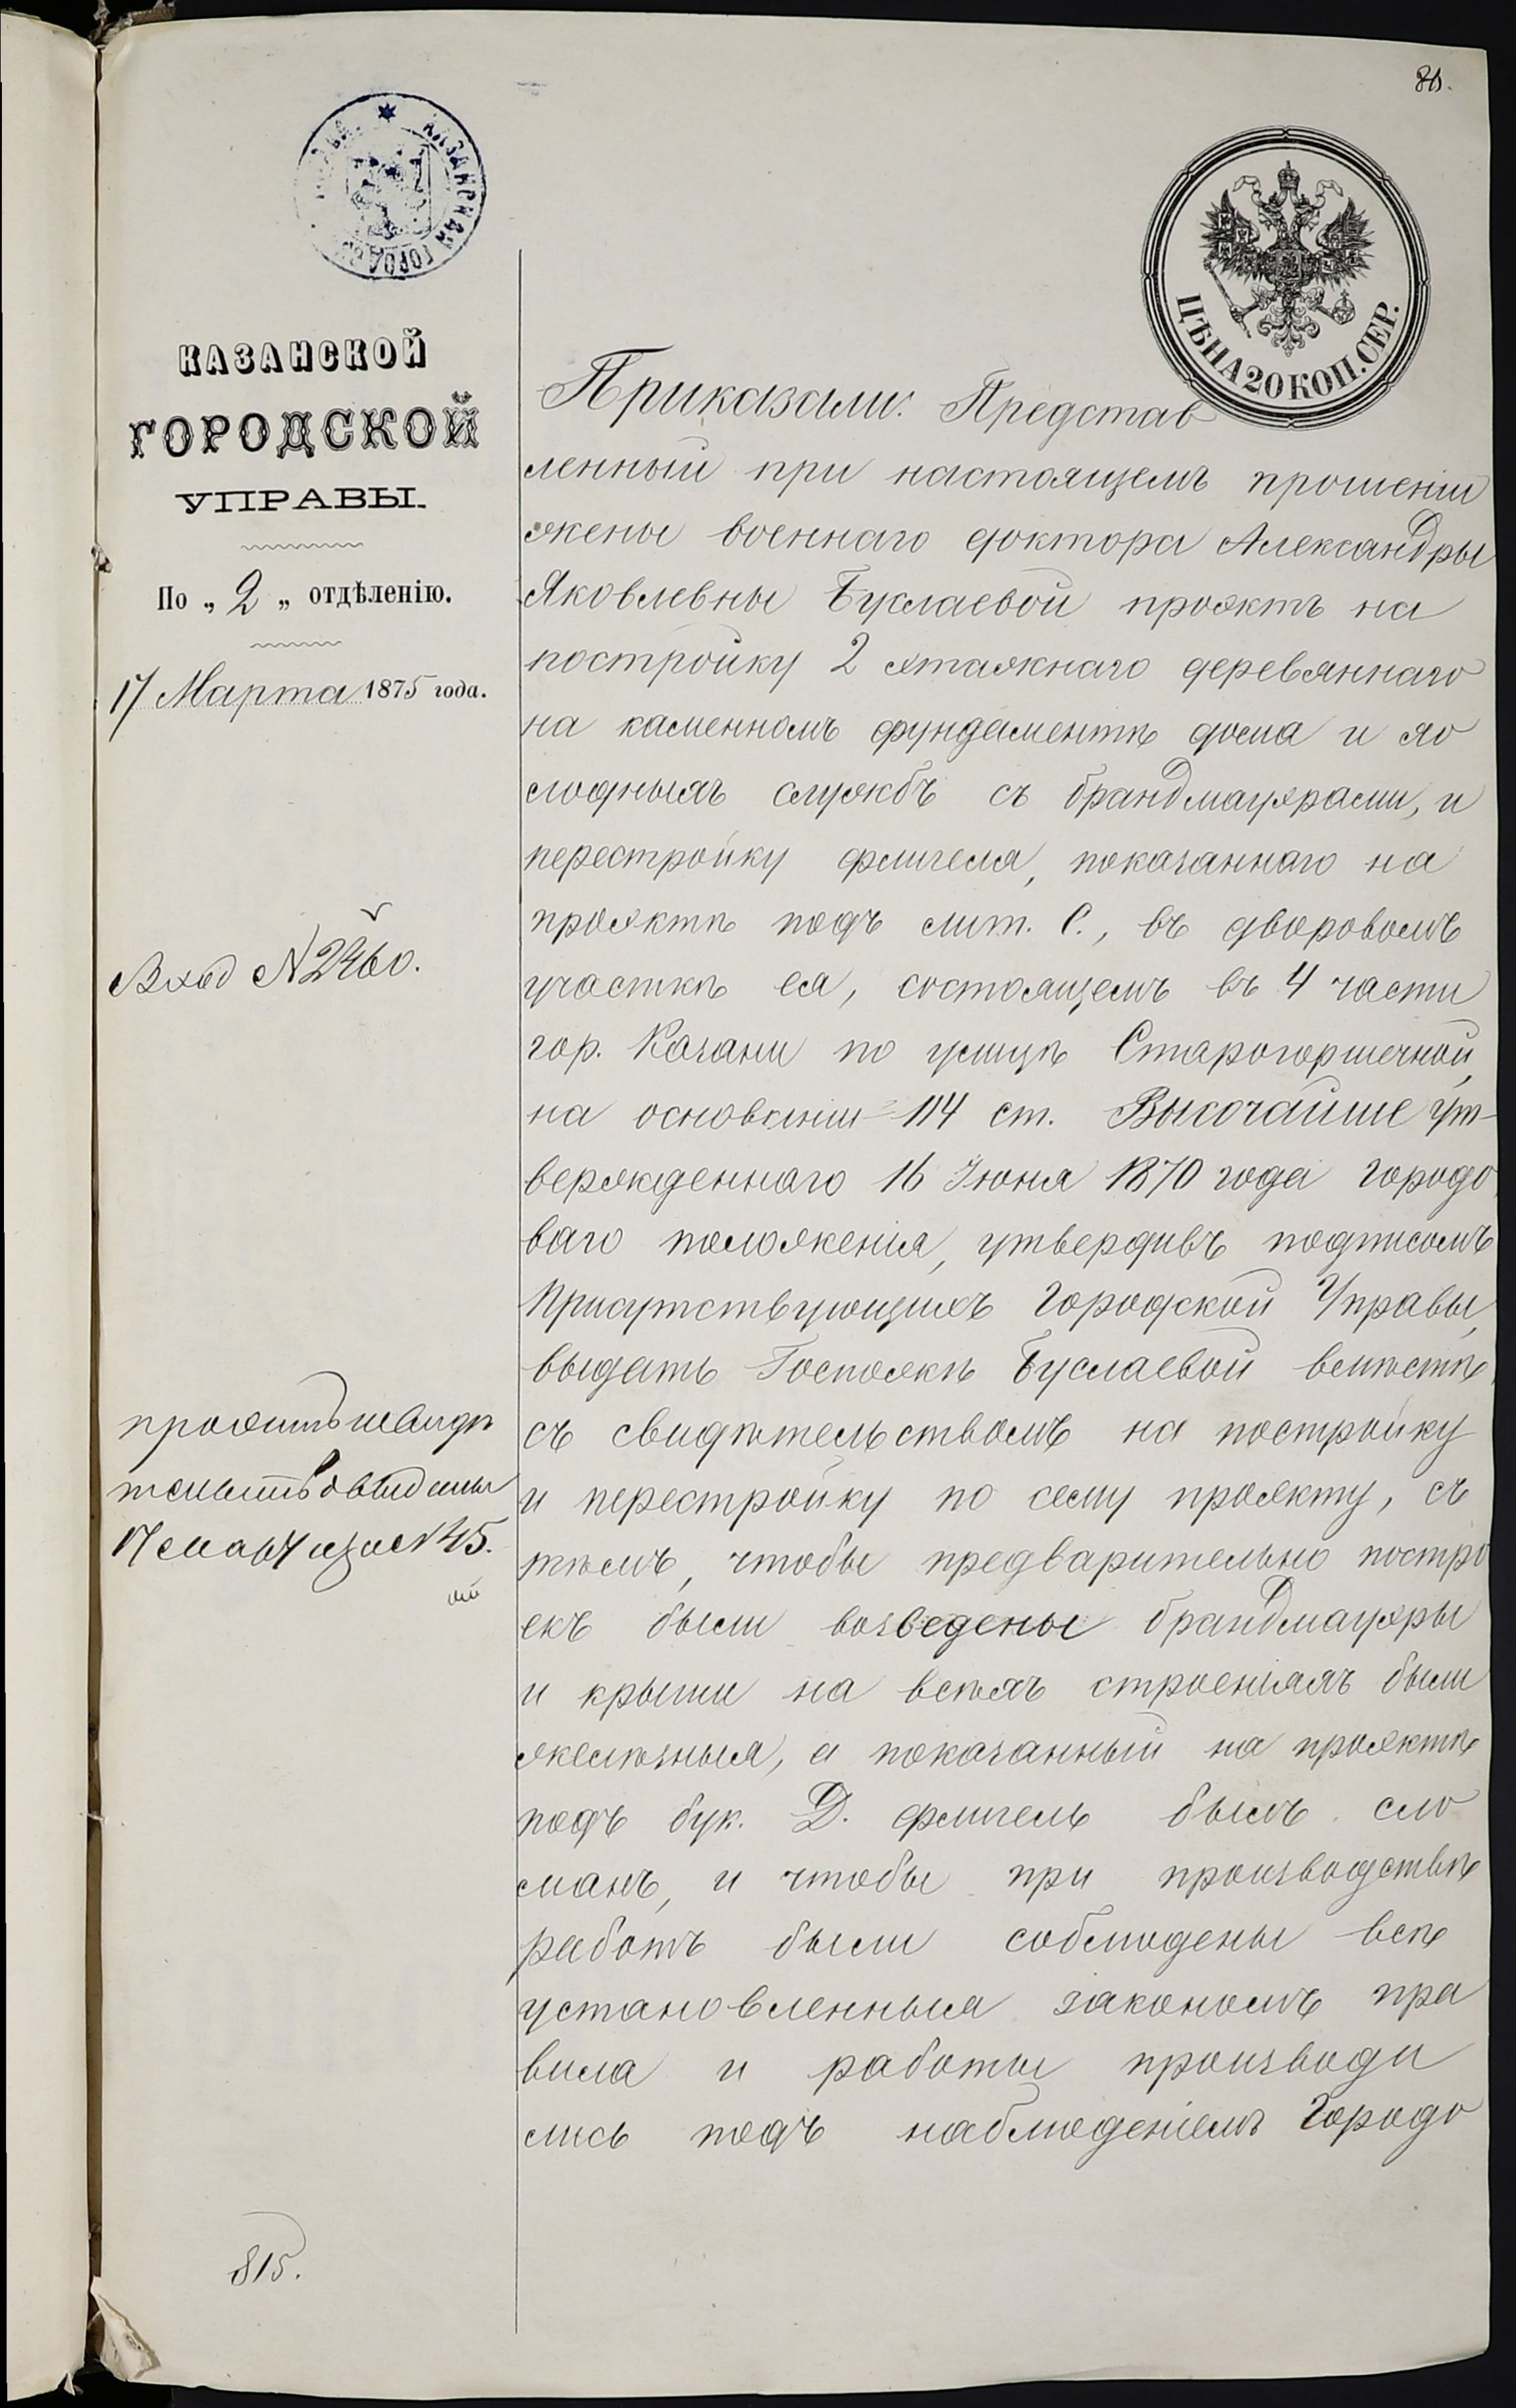 80.
КАЗАНСКАЯ ГОРОДСКАЯ
ЦѢНА 20 КОП. СЕР.
КАЗАНСКОЙ
ГОРОДСКОЙ
УПРАВЫ.
По „ 2 „ отдѣленію.
17 Марта 1875 года.
Вход N 2460.
815.
Приказали: Представ
ленный при настоящемъ прошеніи
жены военнаго доктора Александры
Яковлевны Буслаевой проэктъ на
постройку 2 этажнаго деревяннаго
на каменномъ фундаментѣ дома и хо
лодныхъ службъ съ брандмауэрами, и
перестройку флигеля, показаннаго на
проэктѣ подъ лит. С., въ дворовомъ
участкѣ ея, состоящемъ въ 4 части
гор. Казани по улицѣ Старогоршечной,
на основаніи 114 ст. Высочайше ут-
вержденнаго 16 Іюня 1870 года Городо
ваго положенія, утвердивъ подписомъ
Присутствующихъ Городской Управы,
выдать Госпожѣ Буслаевой вмѣстѣ
съ свидѣтельствомъ на постройку
и перестройку по сему проэкту, съ
тѣмъ, чтобы предварительно постро
екъ были возведены брандмауэры
и крыши на всѣхъ строеніяхъ были
желѣзныя, а показанный на проэктѣ
подъ бук. Д. флигель былъ сло
манъ, и чтобы при производствѣ
работъ были соблюдены всѣ
установленныя закономъ пра
вила и работы производи
лись подъ наблюденіемъ Городо